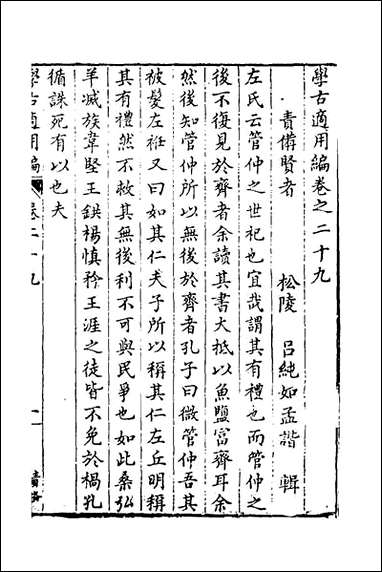 學古適用編卷之二十九
責備賢者
松陵 呂純如孟諧 輯
左氏云管仲之世祀也宜哉謂其有禮也而管仲之
後不復見於齊者余讀其書大抵以魚鹽富齊耳余
然後知管仲所以無後於齊者孔子曰微管仲吾其
被髮左袵又曰如其仁夫子所以稱其仁左丘明稱
其有禮然不救其無後利不可與民爭也如此桑弘
羊滅族韋堅王鉷楊慎矜王涯之徒皆不免於禍孔
循誅死有以也夫
學古適用編 卷二十九 一